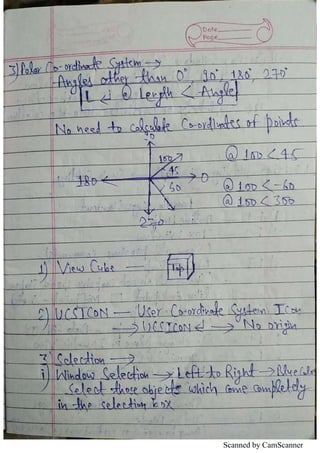 Date
Page
3) Polar Co-ordinate System →
- Angles other than 0°, 90°, 180°, 270°
L ↵ @ Length < Angle
No need to calculate Co-ordinates of points
90
100
45
@ 100 < 45
180
0
50
@ 100 < -60
@ 100 < 300
270
1) View Cube — Top
2) UCSICON — User Co-ordinate System Icon
→ UCSICON ↵ → No origin
Selection →
i) Window Selection → Left to Right → Blue Color
Select those objects which come completely
in the selection box
Scanned by CamScanner